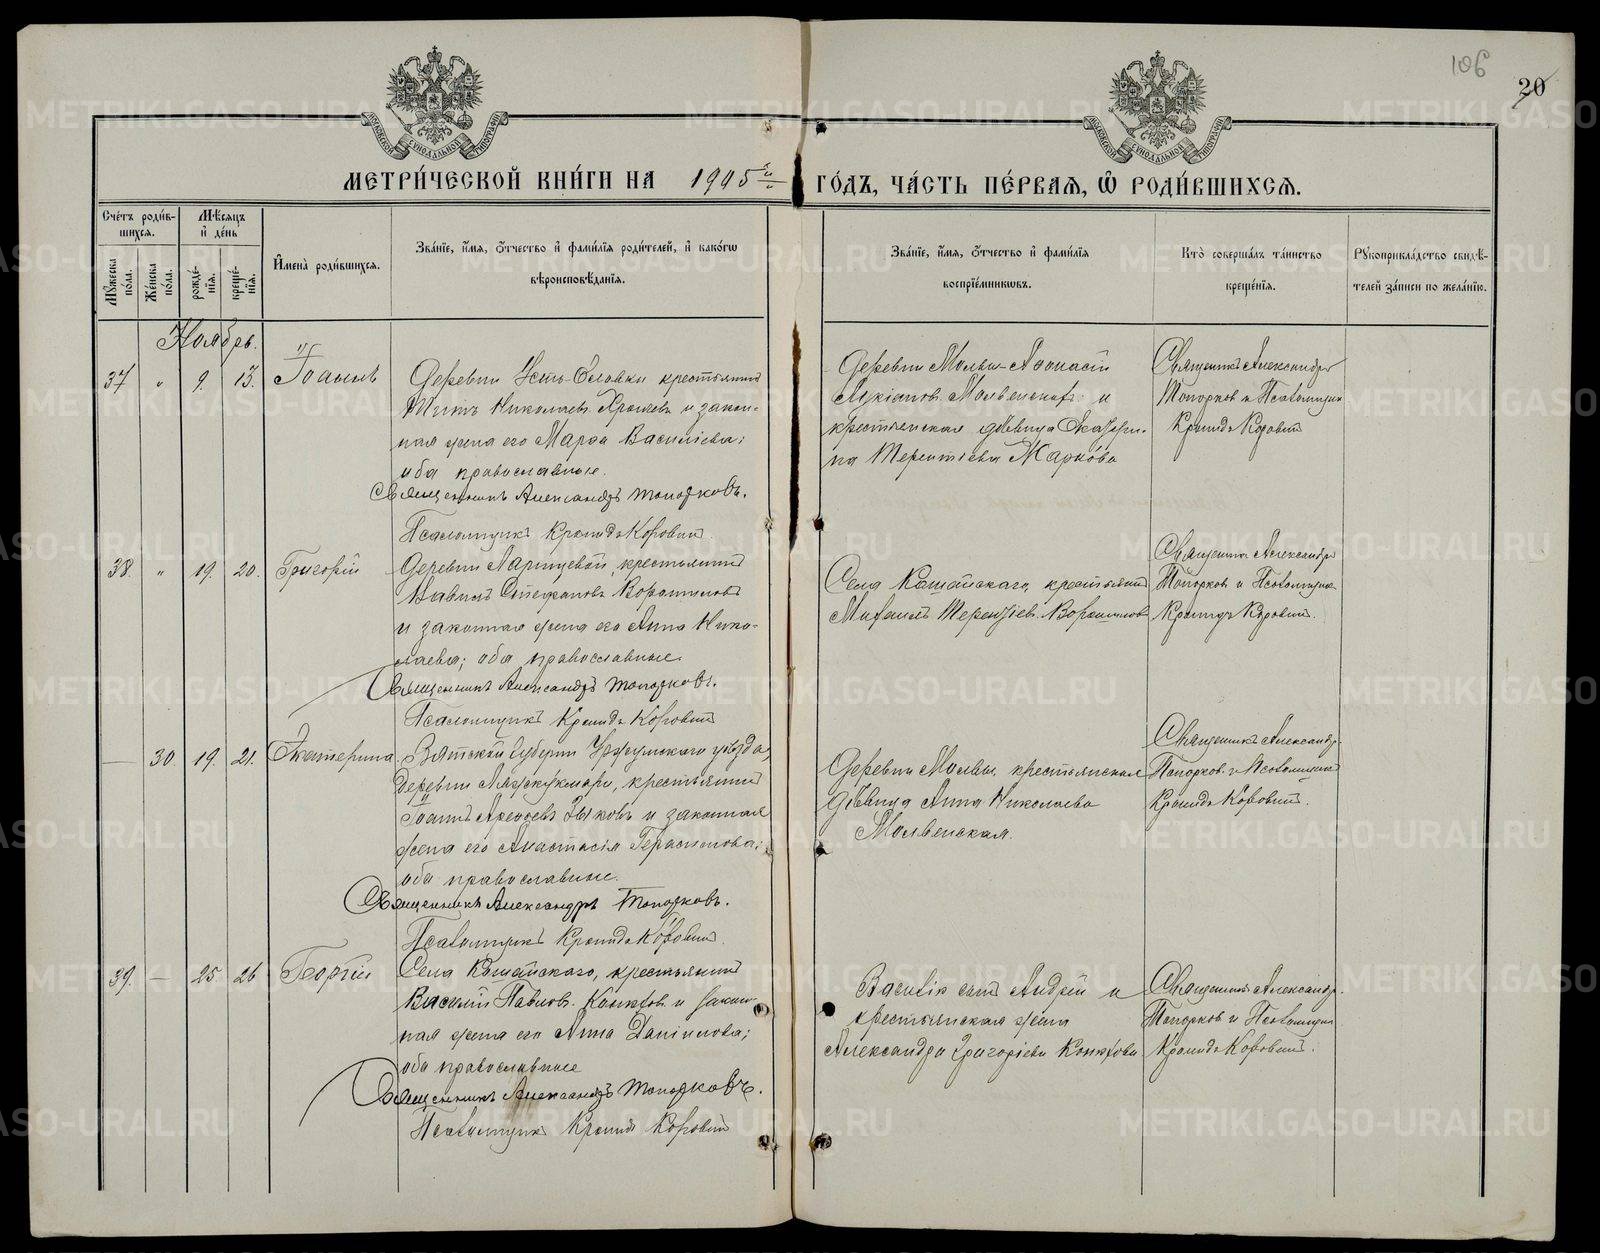 106
20
МЕТРИ́ЧЕСКОЙ КНИ́ГИ НА 1905й ГО́ДЪ, ЧА́СТЬ ПЕ́РВАЯ, Ѡ РОДИ́ВШИХСЯ.
Сче́тъ роди́в-
шихся.
Мѣ́сяцъ
и҆ де́нь
Мꙋ́жеска по́ла.
Же́нска по́ла.
рожде́-
нїя.
креще́-
нїя.
И҆мена̀ роди́вшихся.
Зва́нїе, и҆́мя, ѻ҆́тчество и҆ фами́лїя роди́телей, и҆ како́гѡ
вѣроисповѣ́данїя.
Зва́нїе, и҆́мя, ѻ҆́тчество и҆ фами́лїя
воспрїе́мникѡвъ.
Кто̀ соверша́лъ та́инство
креще́нїя.
Рꙋкоприкла́дство свидѣ́-
телей за́писи по жела́нїю.
Ноябрь.
37 " 9. 13. Іоаннъ
Деревни Усть-Словки крестьянинъ
Титъ Николаевъ и закон-
ная жена его Марѳа Василіева;
оба православные.
Священникъ Александръ Топорковъ.
Псаломщикъ Кронидъ Коровинъ
Деревни Молвы Аѳанасій
Лукіановъ Молвенскихъ и
крестьянская дѣвица Екатери-
на Терентіева Маркова
Священникъ Александръ
Топорковъ и Псаломщикъ
Кронидъ Коровинъ
38. " 19. 20. Григорій
Деревни Ларищевой, крестьянинъ
Вавилъ Стефановъ Ворошиловъ
и законная жена его Анна Нико-
лаева; оба православные.
Священникъ Александръ Топорковъ.
Псаломщикъ Кронидъ Коровинъ
Села Кошайскаго, крестьянинъ
Михаилъ Терентіевъ Ворошиловъ
Священникъ Александръ
Топорковъ и Псаломщикъ
Кронидъ Коровинъ.
— 30 19. 21. Екатерина
Вятской Губерніи Уржумскаго уѣзда,
деревни крестьянинъ
Іоаннъ Зыковъ и законная
жена его Анастасія Герасимова;
оба православные.
Священникъ Александръ Топорковъ.
Псаломщикъ Кронидъ Коровинъ
Деревни Молвы, крестьянская
дѣвица Анна Николаева
Молвенская.
Священникъ Александръ
Топорковъ и Псаломщикъ
Кронидъ Коровинъ.
39. — 25 26 Георгій
Села Кошайскаго, крестьянинъ
Василій Павловъ и закон-
ная жена его Анна Даніилова;
оба православные
Священникъ Александръ Топорковъ.
Псаломщикъ Кронидъ Коровинъ
Василія сынъ Андрей и
крестьянская жена
Александра Григоріева
Священникъ Александръ
Топорковъ и Псаломщикъ
Кронидъ Коровинъ.
METRIKI.GASO-URAL.RU